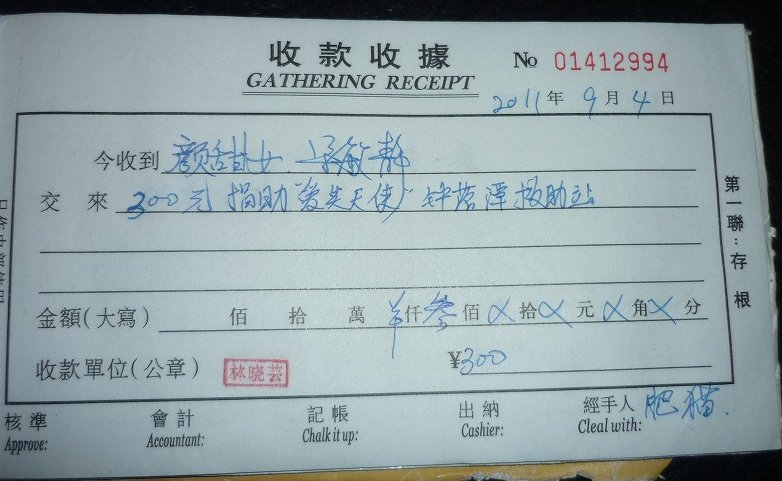 收款收據 No 01412994
GATHERING RECEIPT
2011年9月4日
今收到 颜甜女、梁敏静
交來 300元捐助"爱失天使"钟落潭援助站
金額(大寫) 佰 拾 萬 ¥仟叁佰×拾×元×角×分
收款單位(公章) 林晓芸 ¥300
核準 會計 記帳 出納 經手人 肥猫.
Approve: Accountant: Chalk it up: Cashier: Cleal with:
第一聯：存根